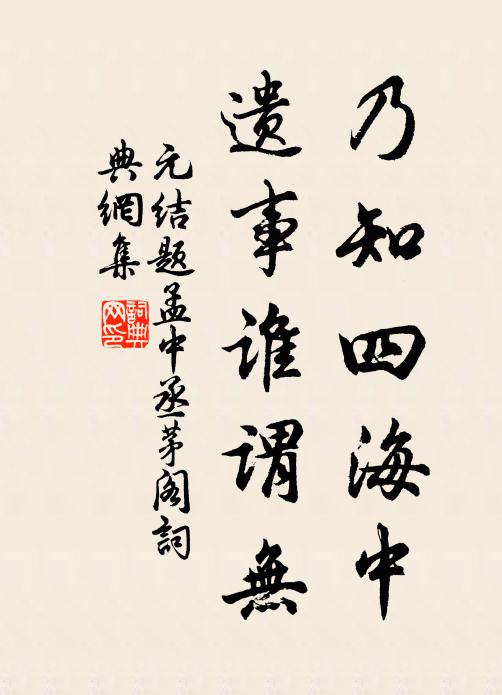 乃知四海中
遗事谁谓無
元结题孟中丞茅阁詞
典網集
詞典网印